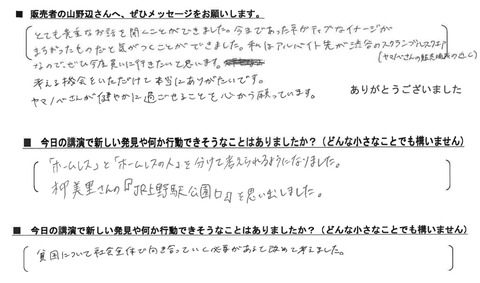 ■ 販売者の山野辺さんへ、ぜひメッセージをお願いします。
とても貴重なお話を聞くことができました。今まであった ネガティブなイメージが
まちがったものだと気がつくことができました。私はアルバイト先が渋谷のスクランブルスクエア
なので、ぜひ今度買いに行きたいと思います。(ヤマノベさんの販売場所の近く)
考える機会をいただけて本当にありがたいです。
ヤマノベさんが健やかに過ごせることを心から願っています。
ありがとうございました
■ 今日の講演で新しい発見や何か行動できそうなことはありましたか?(どんな小さなことでも構いません)
「ホームレス」と「ホームレスの人」を分けて考えられるようになりました。
柳美里さんの『JR上野駅公園口』を思い出しました。
■ 今日の講演で新しい発見や何か行動できそうなことはありましたか?(どんな小さなことでも構いません)
貧困について社会全体で向き合っていく必要があると改めて考えました。